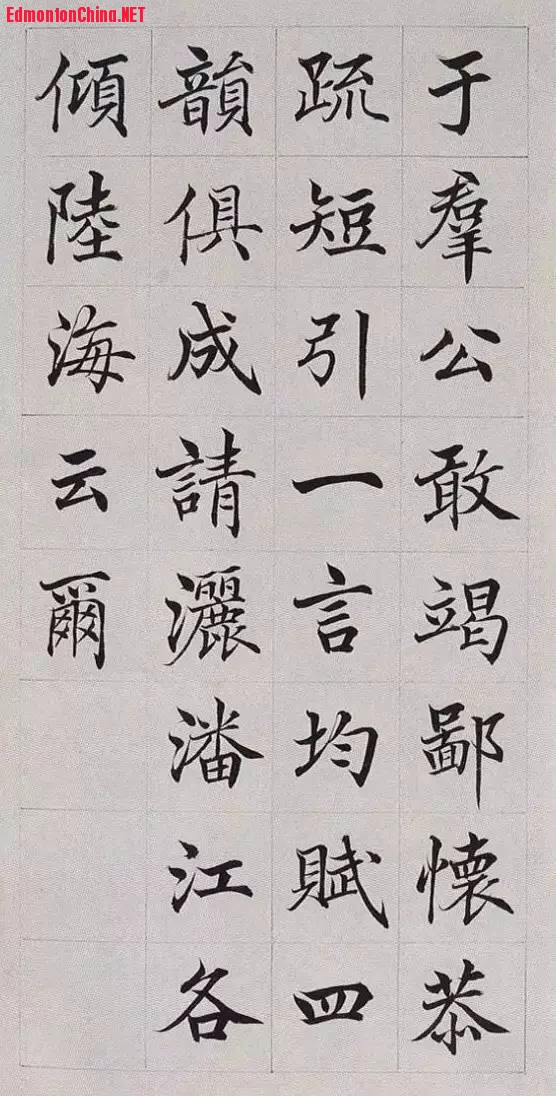 EdmontonChina.NET
于羣公敢竭鄙懷恭
疏短引一言均賦四
韻俱成請灑潘江各
傾陸海云爾